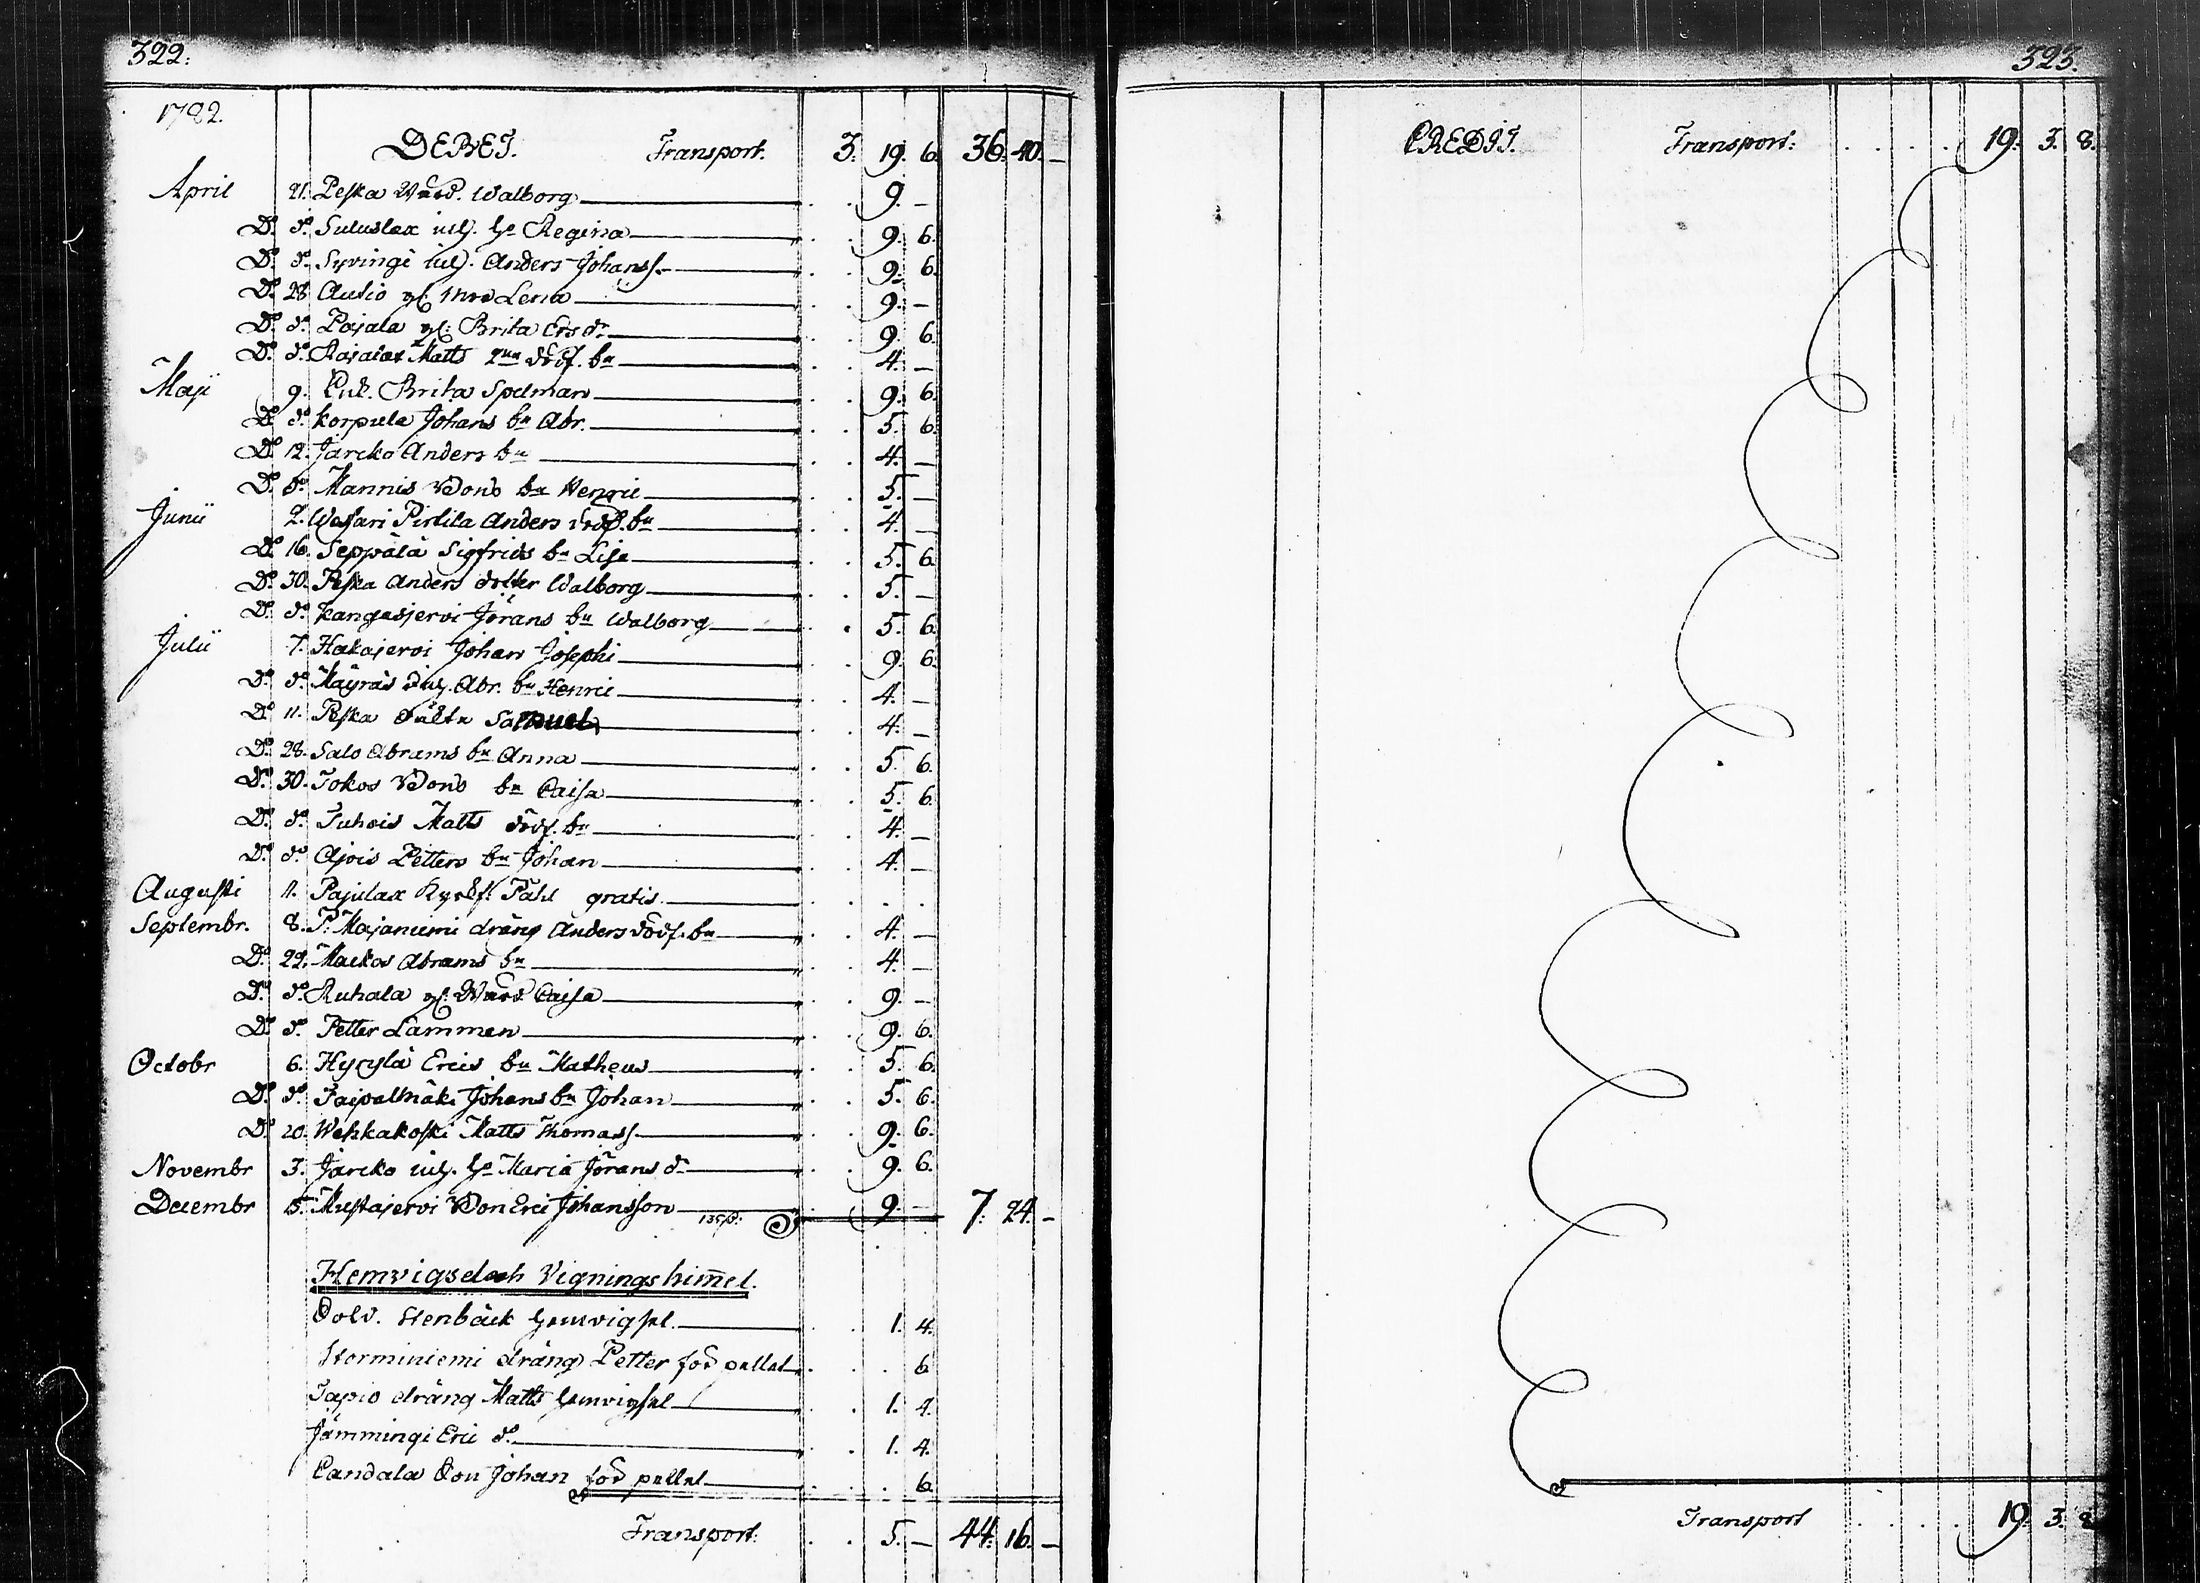 322.
1782.
DEBET. Transport. 3. 19. 6. 36. 40. —
April 21. Peska Walborg 9. —
D:o d:o Suluslax Regina 9. 6.
D:o d:o Syringi Anders Johanss. 9. 6.
D:o 28. Autio Lena 9. —
D:o d:o Pajala Brita Ersd:r 9. 6.
D:o d:o Rajalax Matts dödf. b:n 4. —
Maji 9. Enk. Brita Spelman 9. 6.
D:o d:o Korpula Johans b:n Abr. 5. 6.
D:o 12. Jarcko Anders b:n 4. —
D:o d:o Mannis b:n Henric 5. —
Junii 2. Pirtila Anders dödf. b:n 4. —
D:o 16. Seppälä Sigfrids b:n Lisa 5. 6.
D:o 30. Peska Anders dotter Walborg 5. —
D:o d:o Kangasjervi Jörans b:n Walborg 5. 6.
Julii 7. Hakajervi Johan Josephi 9. 6.
D:o d:o Mäyräs Abr. b:n Henric 4. —
D:o 11. Peska Samuel 4. —
D:o 28. Salo Abrams b:n Anna 5. 6.
D:o 30. Tokos b:n Caisa 5. 6.
D:o d:o Tuhois Matts dödf. b:n 4. —
D:o d:o Ajois Petters b:n Johan 4. —
Augusti 11. Pajulax Påhl gratis
Septembr. 8. P. Majaniemi dräng Anders dödf. b:n 4. —
D:o 22. Mackos Abrams b:n 4. —
D:o d:o Ruhala Caisa 9. —
D:o d:o Petter Lamman 9. 6.
Octobr 6. Hycylä Erics b:n Matheus 5. 6.
D:o d:o Taipalmäki Johans b:n Johan 5. 6.
D:o 20. Wehkakoski Matts Thomass. 9. 6.
Novembr 3. Jarcko Maria Jörans d:r 9. 6.
Decembr 15. Mustajervi Eric Johansson 9. — 7. 24. —
Hemvigsel och Vigningshim̄el.
Stenbäck hemvigsel 1. 4.
Storminiemi dräng Petter för pellel 6.
Tapio dräng Matts hemvigsel 1. 4.
Jämmingi Eric d:o 1. 4.
Candala Johan för pellel 6.
Transport. 5. — 44. 16. —
323.
CREDIT. Transport: 19. 3. 8.
Transport 19. 3. 8.